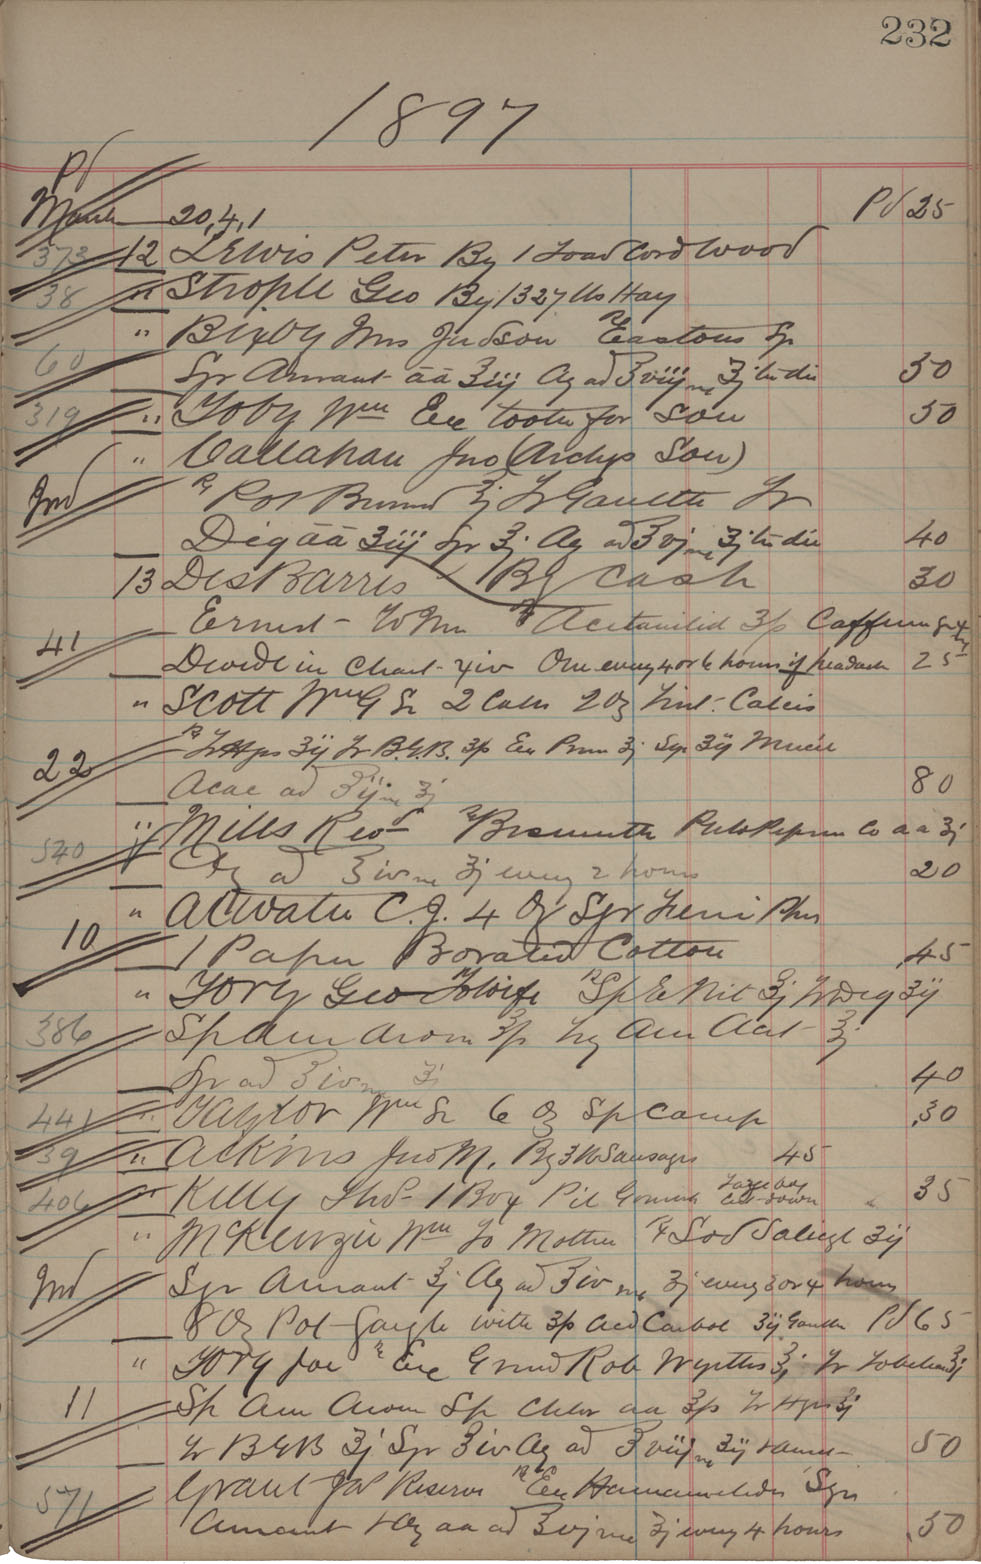 232
1897
Pd
March 20,4,1 Pd 25
373 12 Lewis Peter By 1 Load Cord Wood
38 " Strople Geo By 1327 lbs Hay
" Bixby Mrs Judson ℞ Eastons Syr
60 Syr Aurant āā ʒiij Aq ad ℥viij ʒj 50
319 " Toby Wm Exe tooth for Son 50
" Callahan Jno (Archys Son)
Ind ℞ Pot Bromid ʒj Tr Gaulth Tr
Dig āā ʒiij Syr ℥j Aq ad ℥vj ʒj 40
13 DesBarres By Cash 30
Ernest ℞ Acetanilid ʒſs Caffein
41 Divide in Chart xiv One every 4 or 6 hours if headach 25
" Scott Wm G Sr 2 Oz Lint. Calcis
22 ℞ Tr Hyos ʒij ʒſs Ext Prun ℥j Syr ℥ij Mucil
Acac ad ℥ij ʒj 80
540 " Mills Revd ℞ Bismuth Pulv Co aa ʒj
Aq ad ℥iv ʒj every 2 hours 20
10 " Actwater C.J. 4 Oz Syr Ferri Phos
1 Paper Borated Cotton .45
" Tory Geo Wife ℞ Sp E Nit ℥j Tr Dig ʒij
386 Sp Am Arom ℥ſs Am Acet ℥j
Syr ad ℥iv ʒj 40
441 " Taylor Wm Sr 6 Oz Sp Camp .30
39 " Atkins Jno M. By 3 lb Sausages 45
406 " Kelly Thos 1 Box Pil 35
" McKenzie Wm To Mother ℞ Sod Salicyl ʒij
Ind Syr Aurant ℥j Aq ad ℥iv ʒj every 3 or 4 hours
8 Oz Pot Gargle with ʒſs Acid Carbol ʒij Gaulth Pd 65
" Tory Joe ℞ Exe Grind Rob Wyeths ℥j Tr Lobelia ℥j
11 Sp Am Arom Sp Chlor aa ℥ſs Tr Hyos ℥j
℥j Syr ℥iv Aq ad ℥viij ʒij 50
571 Grant Jas Reserve ℞ Exe Hamamelidis Syr
Aurant + Aq aa ad ℥vj ʒj every 4 hours .50